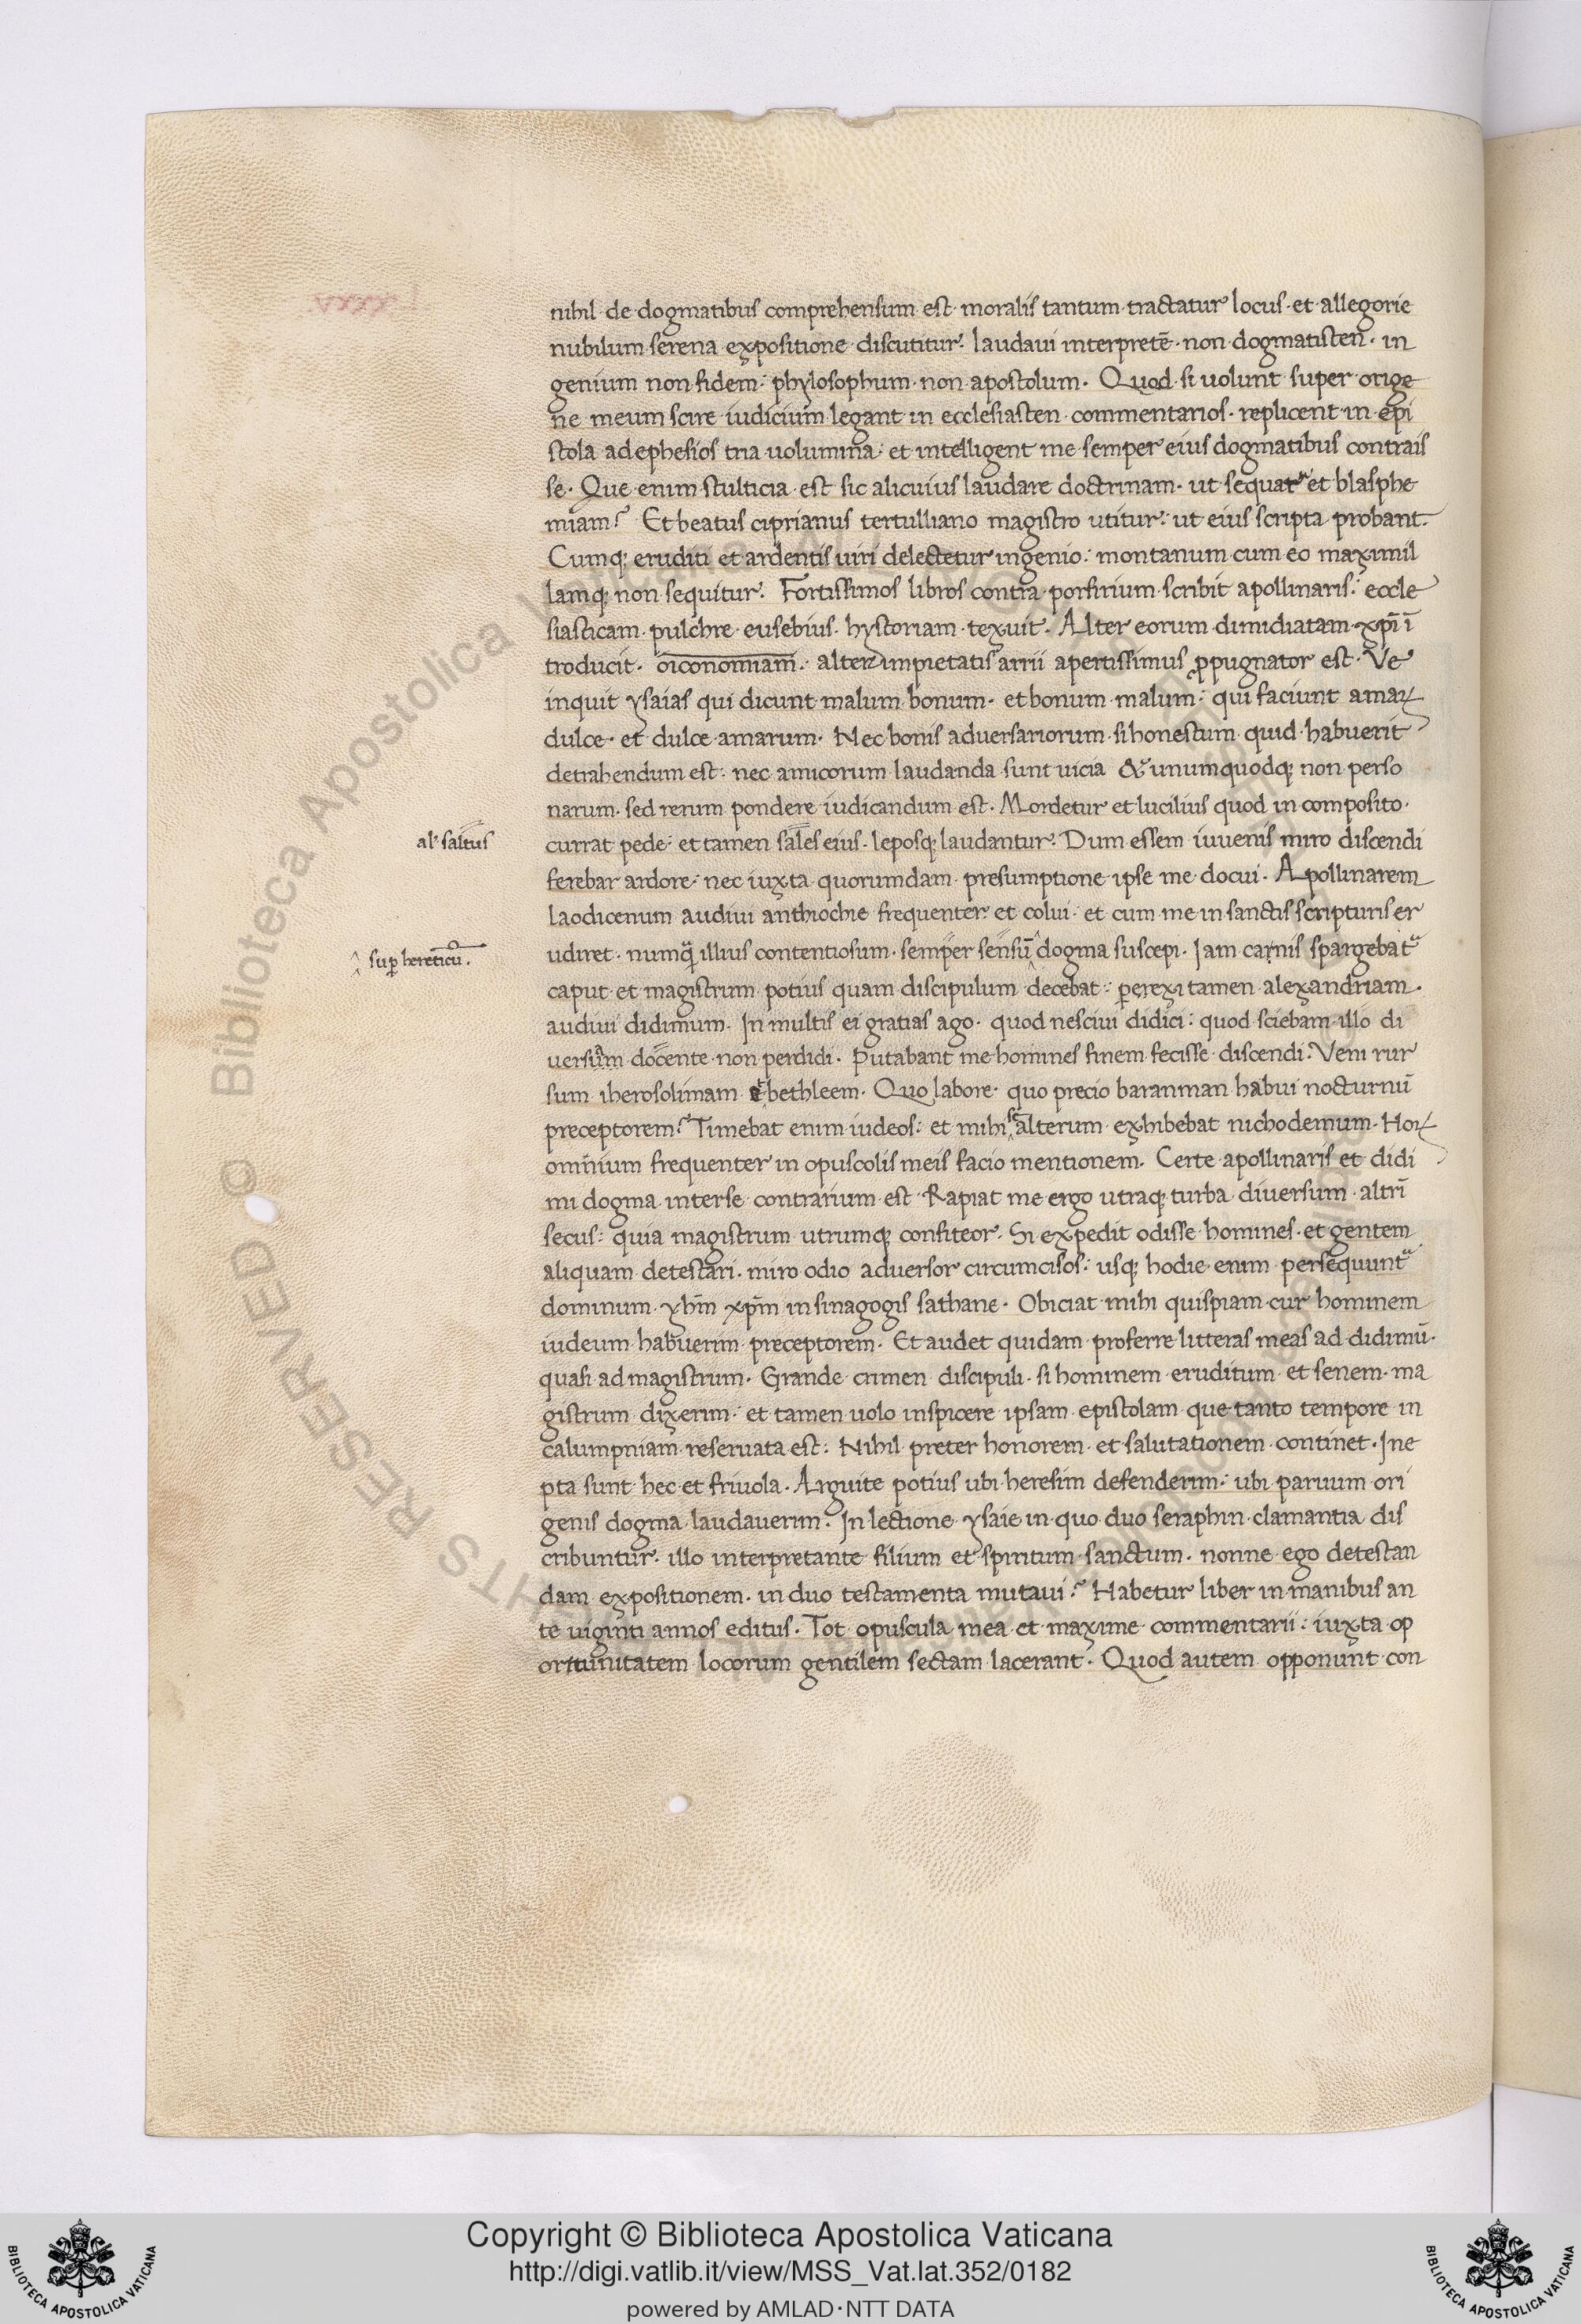 nihil de dogmatibus comprehensum est moralis tantum tractatur locus · et allegorie
nubilum serena expositione discutitur. laudavi interpretē · non dogmatisten · in
genium non fidem: phylosophum · non apostolum. Quod si uolunt super orige
ne meum scire iudicium legant in ecclesiasten commentarios · replicent in epi
stola ad ephesios tria uolumina: et intelligent me semper eius dogmatibus contrais
se. Que enim stulticia est sic alicuius laudare doctrinam · ut sequar et blasphe
miam? Et beatus ciprianus tertulliano magistro utitur: ut eius scripta probant.
Cumq; eruditi et ardentis uiri delectetur ingenio: montanum cum eo maximil
lamq; non sequitur. Fortissimos libros contra porfirium scribit apollinaris: eccle
siasticam pulchre eusebius hystoriam texuit. Alter eorum dimidiatam xp̄i ī
troducit · oiconomiam: alter impietatis arrii apertissimus ꝓpugnator est. Ve
inquit ysaias qui dicunt malum bonum · et bonum malum: qui faciunt amaꝝ
dulce · et dulce amarum. Nec bonis adversariorum si honestum quid habuerit
detrahendum est: nec amicorum laudanda sunt uicia & unumquodq; non perso
narum · sed rerum pondere iudicandum est. Mordetur et lucilius quod in composito
al' saltus
currat pede: et tamen sales eius · leposq; laudantur. Dum essem iuvenis miro discendi
ferebar ardore: nec iuxta quorumdam presumptione ipse me docui. Apollinarem
laodicenum audiui anthiochie frequenter et colui: et cum me in sanctis scripturis er
suꝑ hereticū.
udiret · numq̄ illius contentiosum semper sensū dogma suscepi. Jam carnis spargebat᷑
caput et magistrum potius quam discipulum decebat: perexi tamen alexandriam.
audiui didimum. In multis ei gratias ago · quod nesciui didici: quod sciebam illo di
uersum docente non perdidi. Putabant me homines finem fecisse discendi. Veni rur
sum iherosolimam et bethleem. Quo labore · quo precio baranman habui nocturnū
preceptorem? Timebat enim iudeos: et mihi se alterum exhibebat nichodemum. Hoꝝ
omnium frequenter in opuscolis meis facio mentionem. Certe apollinaris et didi
mi dogma inter se contrarium est Rapiat me ergo utraq; turba diversum altrī
secus: quia magistrum utrumq; confiteor. Si expedit odisse homines · et gentem
aliquam detestari · miro odio adversor circumcisos: usq; hodie enim persequunt᷑
dominum yhm̄ xpm̄ in sinagogis sathane. Obiciat mihi quispiam cur hominem
iudeum habuerim preceptorem. Et audet quidam proferre litteras meas ad didimū.
quasi ad magistrum. Grande crimen discipuli · si hominem eruditum et senem · ma
gistrum dixerim: et tamen uolo inspicere ipsam epistolam que tanto tempore in
calumpniam reseruata est: Nihil preter honorem et salutationem continet. Ine
pta sunt hec et friuola. Arguite potius ubi heresim defenderim: ubi paruum ori
genis dogma laudauerim. In lectione ysaie in quo duo seraphin clamantia dis
cribuntur · illo interpretante filium et spiritum sanctum · nonne ego detestan
dam expositionem · in duo testamenta mutaui? Habetur liber in manibus an
te uiginti annos editus. Tot opuscula mea et maxime commentarii: iuxta op
ortunitatem locorum gentilem sectam lacerant. Quod autem opponunt con
© Biblioteca Apostolica Vaticana
Copyright © Biblioteca Apostolica Vaticana
http://digi.vatlib.it/view/MSS_Vat.lat.352/0182
powered by AMLAD·NTT DATA
BIBLIOTECA APOSTOLICA VATICANA
BIBLIOTECA APOSTOLICA VATICANA